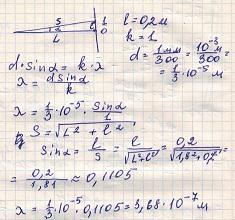 S
l
L
0
l = 0,2м
k = 1
d = 1мм/300 = 10⁻³м/300 =
= 1/3 · 10⁻⁵ м
d · sinα = k · λ
λ = d sinα / k
λ = 1/3 · 10⁻⁵ · sinα / 1
S = √(L² + l²) ,
sinα = l/S = l/√(L²+l²) = 0,2/√(1,8²+0,2²) =
= 0,2/1,81 ≈ 0,1105
λ = 1/3 · 10⁻⁵ · 0,1105 = 3,68 · 10⁻⁷ м